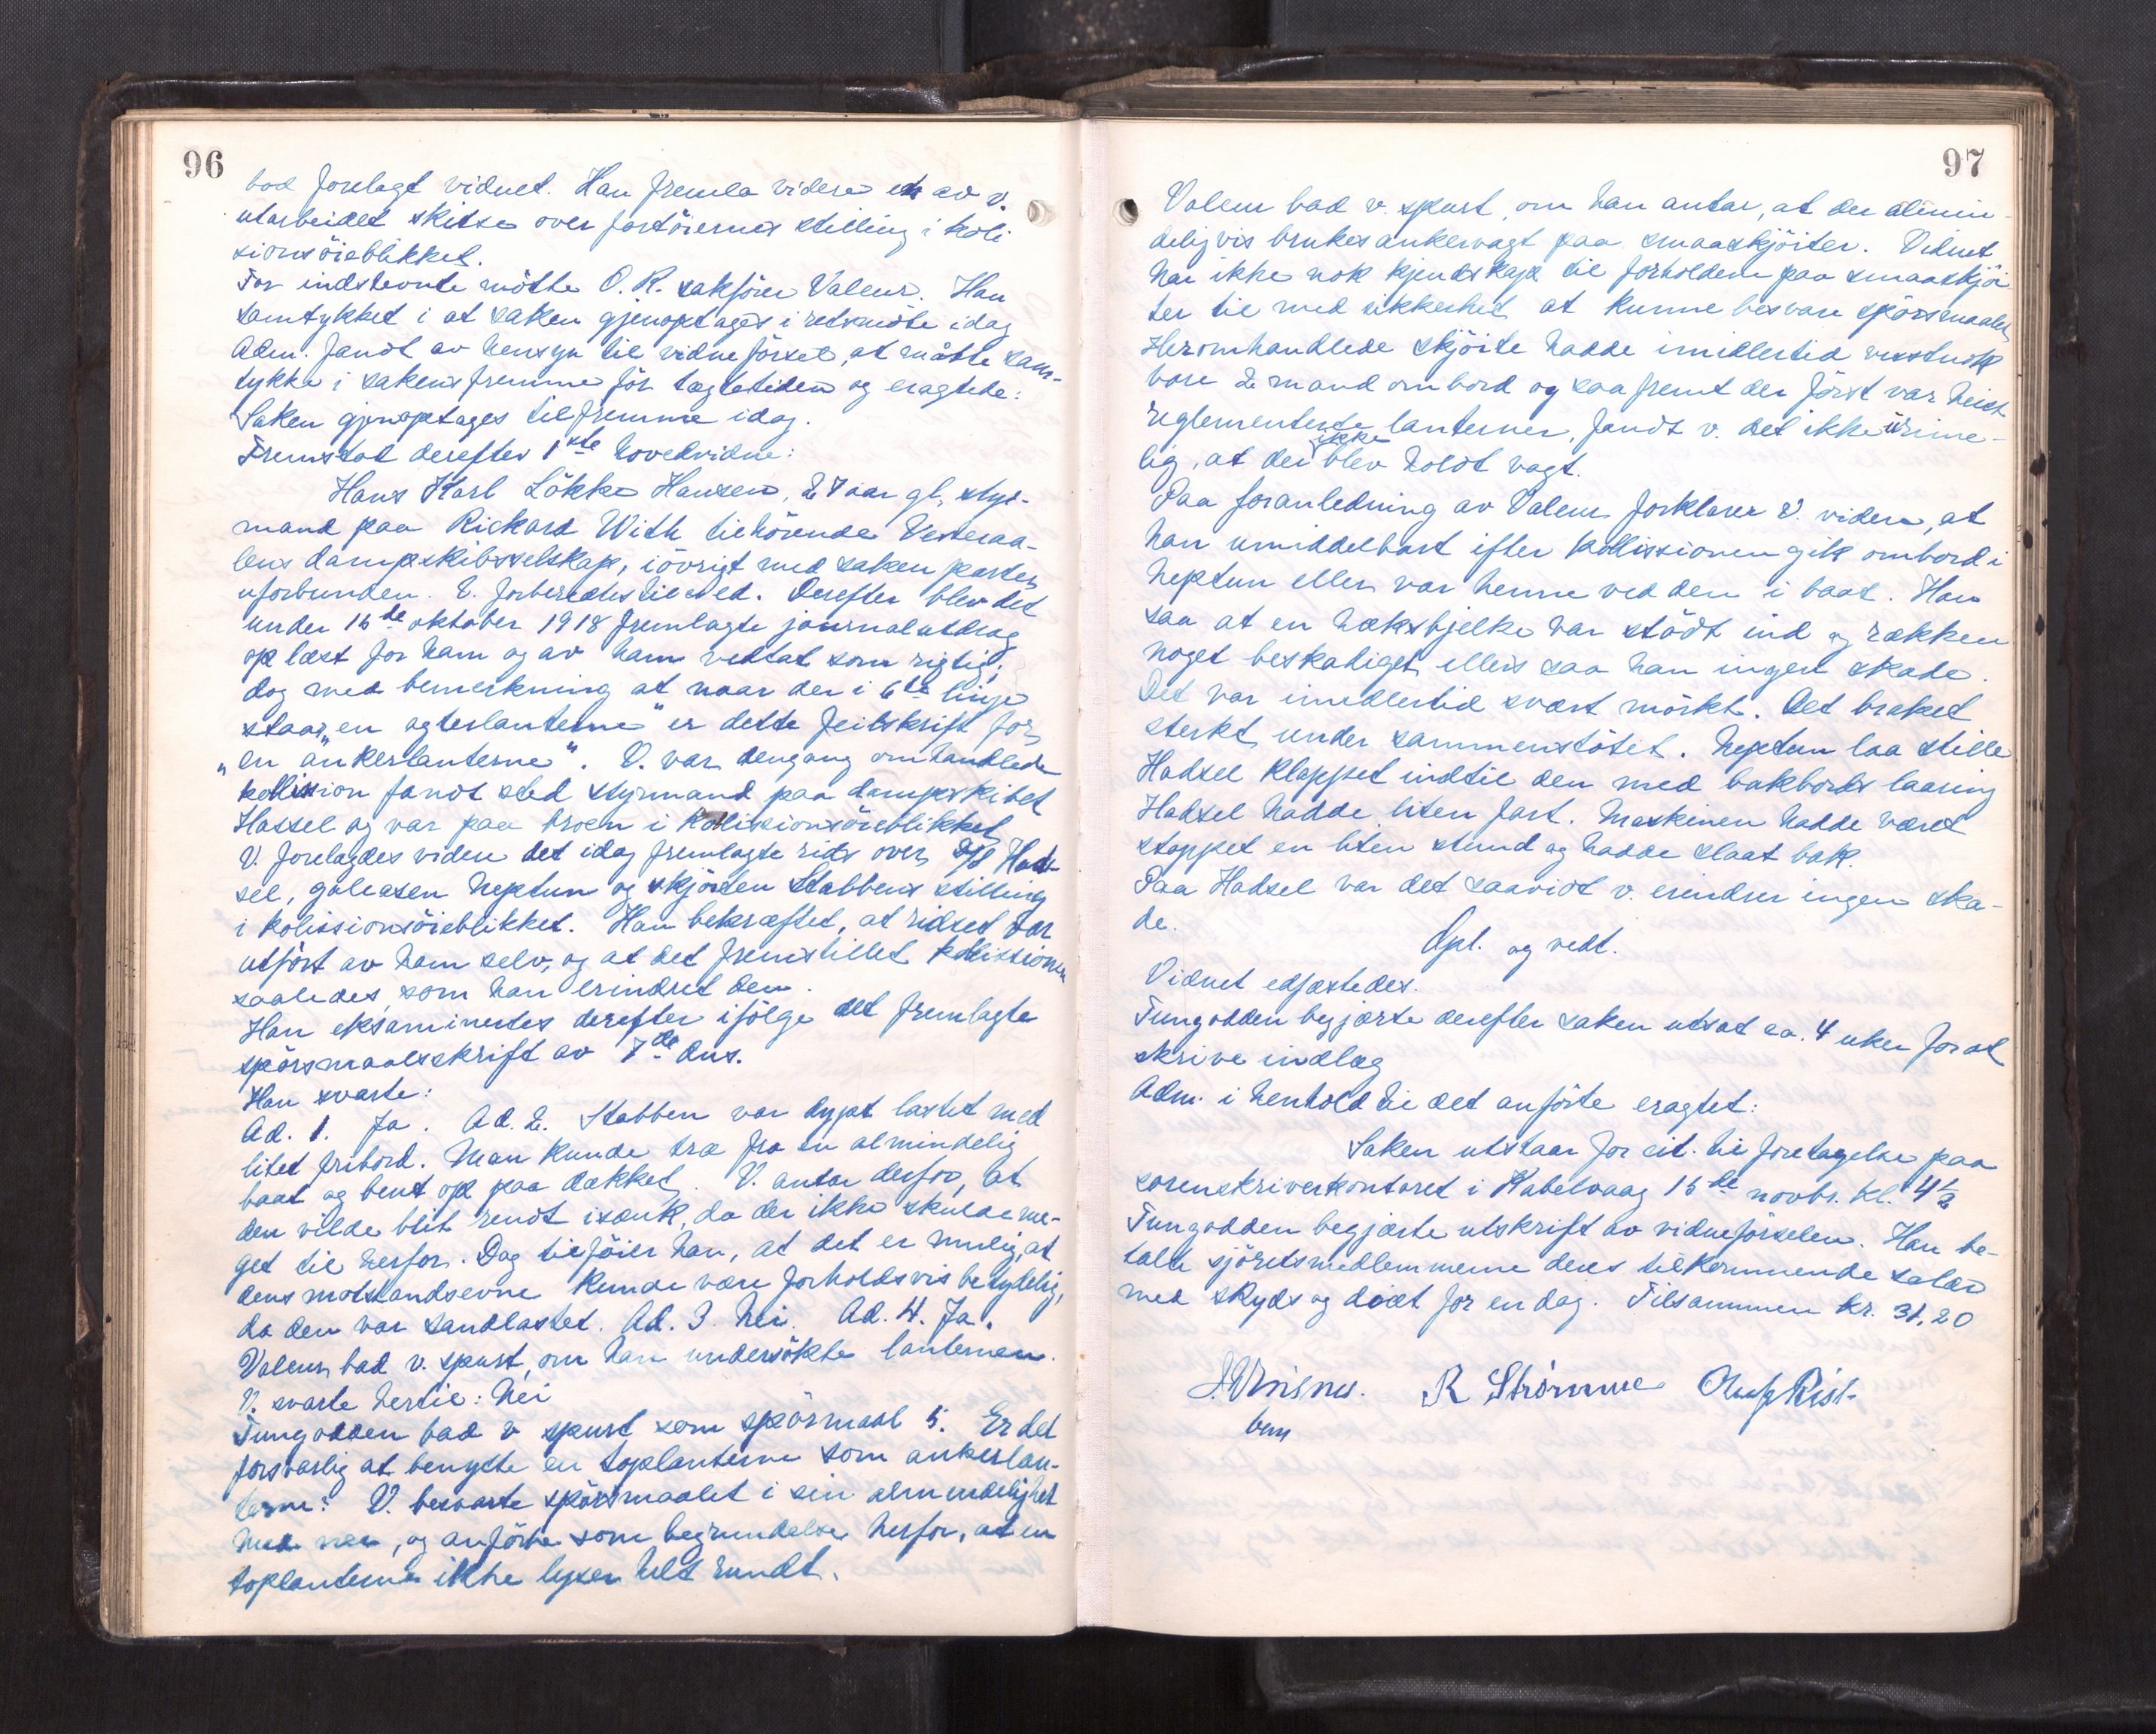 96
bad forelagt vidnet. Han fremla videre en av v.
utarbeidet skitse over fartöiernes stilling i koli
sionsöieblikket.
For indstevnte mötte O. R. sakförer Valeur. Han
samtykket i at saken gjenoptages i retsmöte idag
Adm. fandt av hensyn til vidneförsel, at måtte sam-
tykke i sakens fremme för tægtetiden og eragtede:
Saken gjenoptages til fremme idag.
Fremstod derefter 1ste hovedvidne:
Hans Karl Lökke Hansen, 27 aar gl, styr-
mand paa Rickard With tilhörende Vesteraa-
lens dampskibsselskap, iövrigt med saken parter
uforbunden. E. forberedtes til ed. Derefter blev det
under 16de oktober 1918 fremlagte journalutdrag
oplæst for ham og av ham vedtat som rigtig;
dog med bemerkning at naar der i 6te linje
staar „en agterlanterne" er dette feilskrift for
„en ankerlanterne". V. var dengang omhandlede
kollision fandt sted styrmand paa dampskibet
Hassel og var paa broen i kollissionsöieblikket
V. forelagdes videre det idag fremlagte rids over D/S Had-
sel, galeasen Neptun og skjöiten Stabbens stilling
i kolissionsöieblikket. Han bekræftet, at ridset var
utfört av ham selv, og at det fremstillet kollissionen
saaledes, som han erindret den.
Han eksaminertes derefter ifölge det fremlagte
spörsmaalsskrift av 7de dns.
Han svarte:
Ad. 1. Ja. Ad. 2. Stabben var dypt lastet med
litet fribord. Man kunde træ fra en almindelig
baat og bent op paa dækket. V. antar derfor, at
den vilde blit rendt isænk, da der ikke skulde me-
get til herfor. Dog tilföier han, at det er mulig, at
dens motstandsevne kunde være forholdsvis betydelig,
da den var sandlastet. Ad. 3. Nei. Ad. 4. Ja.
Valeur bad v. spurt, om han undersökte lanternen.
V. svarte hertil: Nei
Tungodden bad v spurt som spörmaal 5. Er det
forsvarlig at benytte en toplanterne som ankerlan-
terne? V. besvarte spörsmaalet i sin almindelighet
med nei, og anförte som begrundelse herfor, at en
toplanterne ikke lyser helt rundt.
97
Valeur bad v. spurt, om han antar, at der almin-
deligvis brukes ankervagt paa smaaskjöiter. Vidnet
har ikke nok kjendskap til forholdene paa smaaskjöi-
ter til med sikkerhet at kunne besvare spörsmaalet
Heromhandlede skjöite hadde imidlertid visstnok
bare 2 mand ombord og saafremt der först var heist
reglementerte lanterner, fandt v. det ikke urime-
lig, at der ikke blev holdt vagt.
Paa foranledning av Valeur forklarer V. videre, at
han umiddelbart efter kollissionen gik ombord i
Neptun eller var henne ved den i baat. Han
saa at en hæksbjelke var stödt ind og rækken
noget beskadiget, ellers saa han ingen skade.
Det var imidlertid svært mörkt. Det braket
sterkt under sammenstötet. Neptun laa stille
Hadsel klappet indtil den med bakbords laaring
Hadsel hadde liten fart. Maskinen hadde været
stoppet en liten stund og hadde slaat bak.
Paa Hadsel var det saavidt v. erindrer ingen ska-
de.
Opl. og vedt.
Vidnet edfæstedes.
Tungodden begjærte derefter saken utsat ca. 4 uker for at
skrive indlæg
Adm. i henhold til det anförte eragtet:
Saken utstaar for cit. til foretagelse paa
sorenskriverkontoret i Kabelvaag 15de novbr. kl. 4½
Tungodden begjærte utskrift av vidneförselen. Han be-
talte sjöretsmedlemmerne deres tilkommende salær
med skyds og diæt for en dag. Tilsammen kr. 31,20
R Strömme